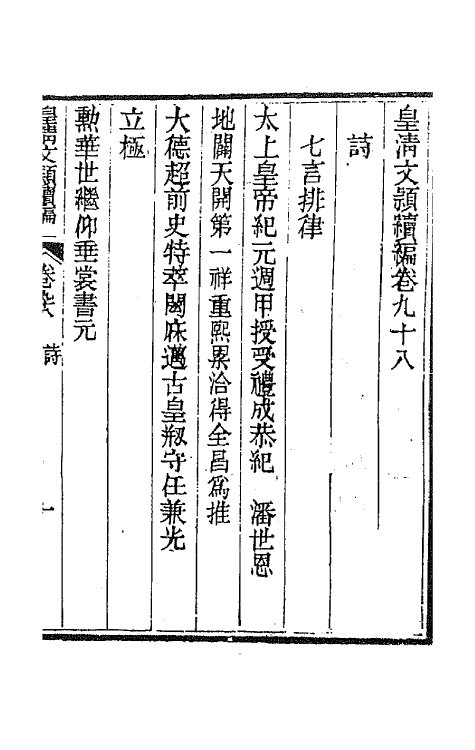 皇淸文頴續編卷九十八
詩
七言排律
太上皇帝紀元週甲授受禮成恭紀 潘世恩
地闢天開第一祥重熙累洽得全昌爲推
大德超前史特萃閎庥邁古皇剏守任兼光
立極
勳華世繼仰垂裳書元
皇淸文頴續編 卷九十八 詩 一